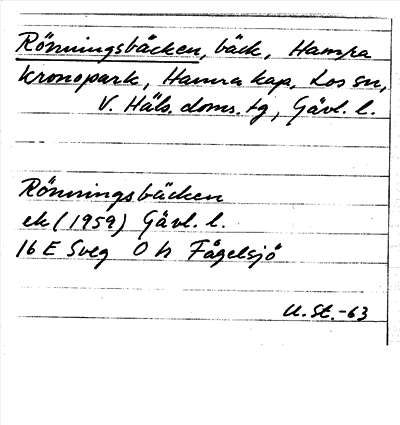 Rönningsbäcken, bäck, Hamra
kronopark, Hamra kap, Los sn,
V. Häls. doms. tg, Gävl. l.
Rönningsbäcken
ek (1959) Gävl. l.
16 E Sveg O h Fågelsjö
U. St. -63